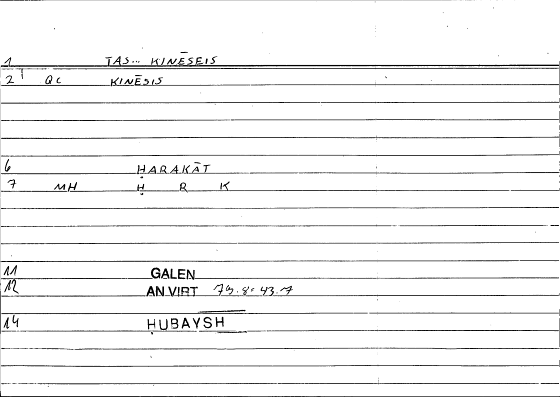 1 TAS... KINĒSEIS
2 QC KINĒSIS
6 ḤARAKĀT
7 MH Ḥ R K
11 GALEN
12 AN VIRT
14 ḤUBAYSH